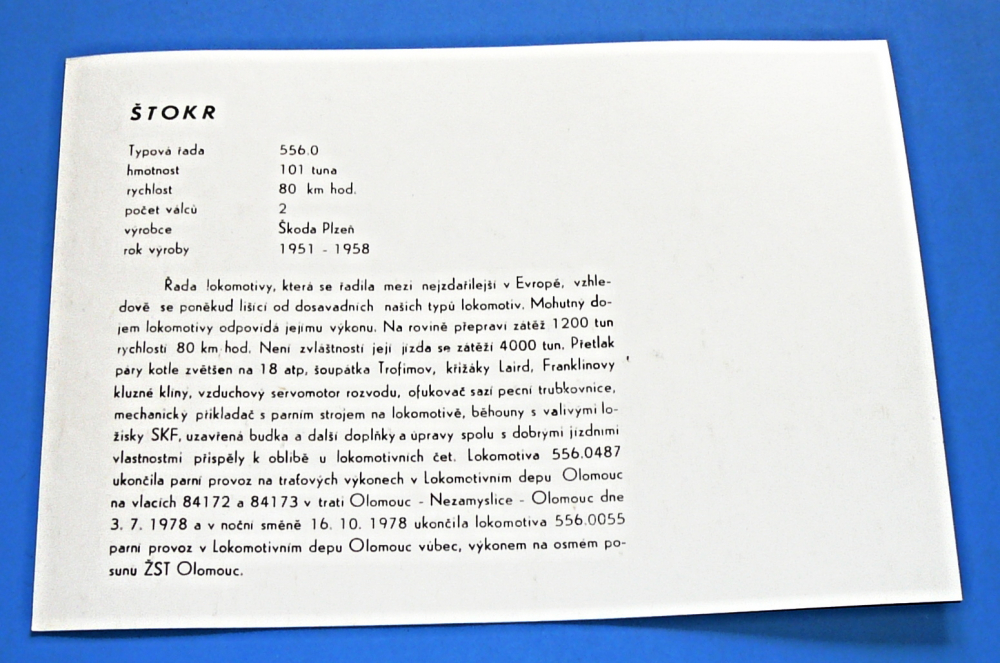 ŠTOKR
Typová řada 556.0
hmotnost 101 tuna
rychlost 80 km hod.
počet válců 2
výrobce Škoda Plzeň
rok výroby 1951 - 1958
Řada lokomotivy, která se řadila mezi nejzdařilejší v Evropě, vzhle-
dově se poněkud lišící od dosavadních našich typů lokomotiv. Mohutný do-
jem lokomotivy odpovídá jejímu výkonu. Na rovině přepraví zátěž 1200 tun
rychlostí 80 km hod. Není zvláštností její jízda se zátěží 4000 tun. Přetlak
páry kotle zvětšen na 18 atp, šoupátka Trofimov, křižáky Laird, Franklinovy
kluzné klíny, vzduchový servomotor rozvodu, ofukovač sazí pecní trubkovnice,
mechanický přikladač s parním strojem na lokomotivě, běhouny s valivými lo-
žisky SKF, uzavřená budka a další doplňky a úpravy spolu s dobrými jízdními
vlastnostmi přispěly k oblibě u lokomotivních čet. Lokomotiva 556.0487
ukončila parní provoz na traťových výkonech v Lokomotivním depu Olomouc
na vlacích 84172 a 84173 v trati Olomouc - Nezamyslice - Olomouc dne
3. 7. 1978 a v noční směně 16. 10. 1978 ukončila lokomotiva 556.0055
parní provoz v Lokomotivním depu Olomouc vůbec, výkonem na osmém po-
sunu ŽST Olomouc.